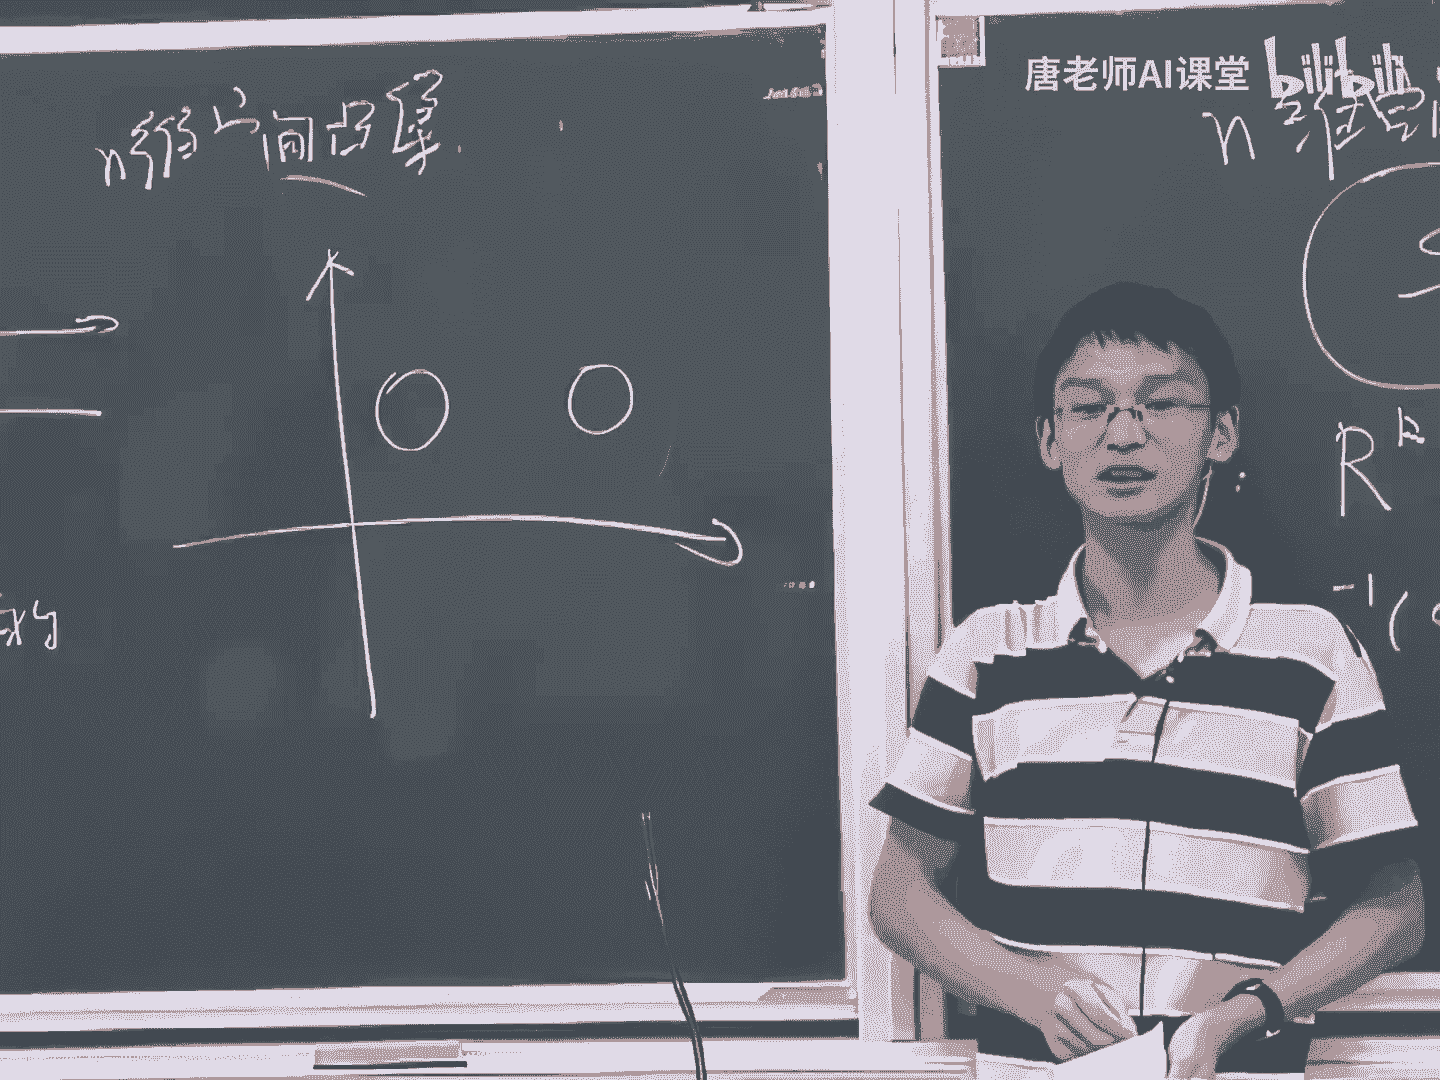 n维空间凸集.
唐老师AI课堂 bilibili
n 维空
R
-1(
的